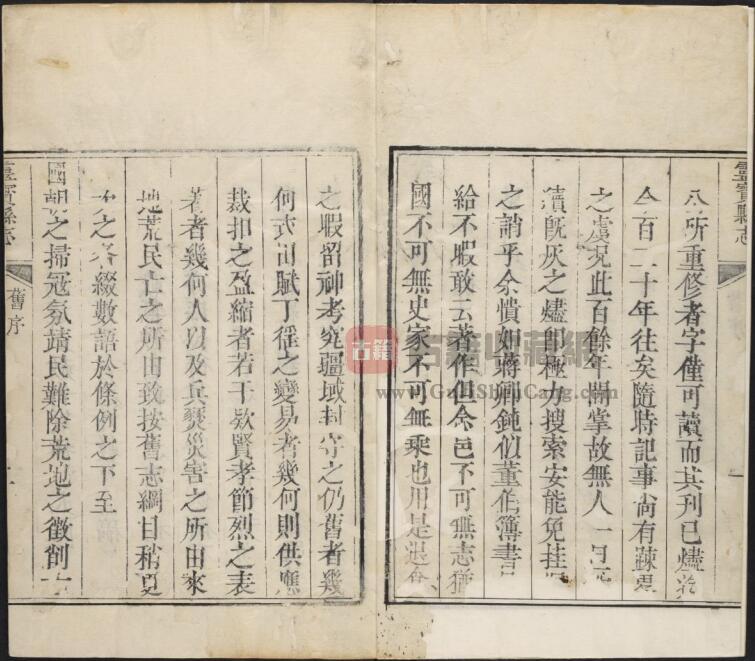 靈寶縣志
所重修者字僅可讀而其刊已燼於
今百二十年往矣隨時記事尚有疎
之虞況此百餘年間掌故無人一日
續既灰之燼即極力搜索安能免挂
之誚乎余憒如蔣卿鈍似董伯簿書
給不暇敢云著作但念邑不可無志猶
國不可無史家不可無乘也用是退食
之暇留神考究疆域封守之仍舊者幾
何式田賦丁徭之變易者幾何則供應
裁扣之盈縮者若干欵賢孝節烈之表
著者幾何人以及兵燹災害之所由來
地荒民亡之所由致按舊志綱目稍更
次之各綴數語於條例之下至
國朝之掃寇氛靖民難除荒地之徵創
靈寶縣志
舊序
古籍收藏網
www.GuJiShouCang.com